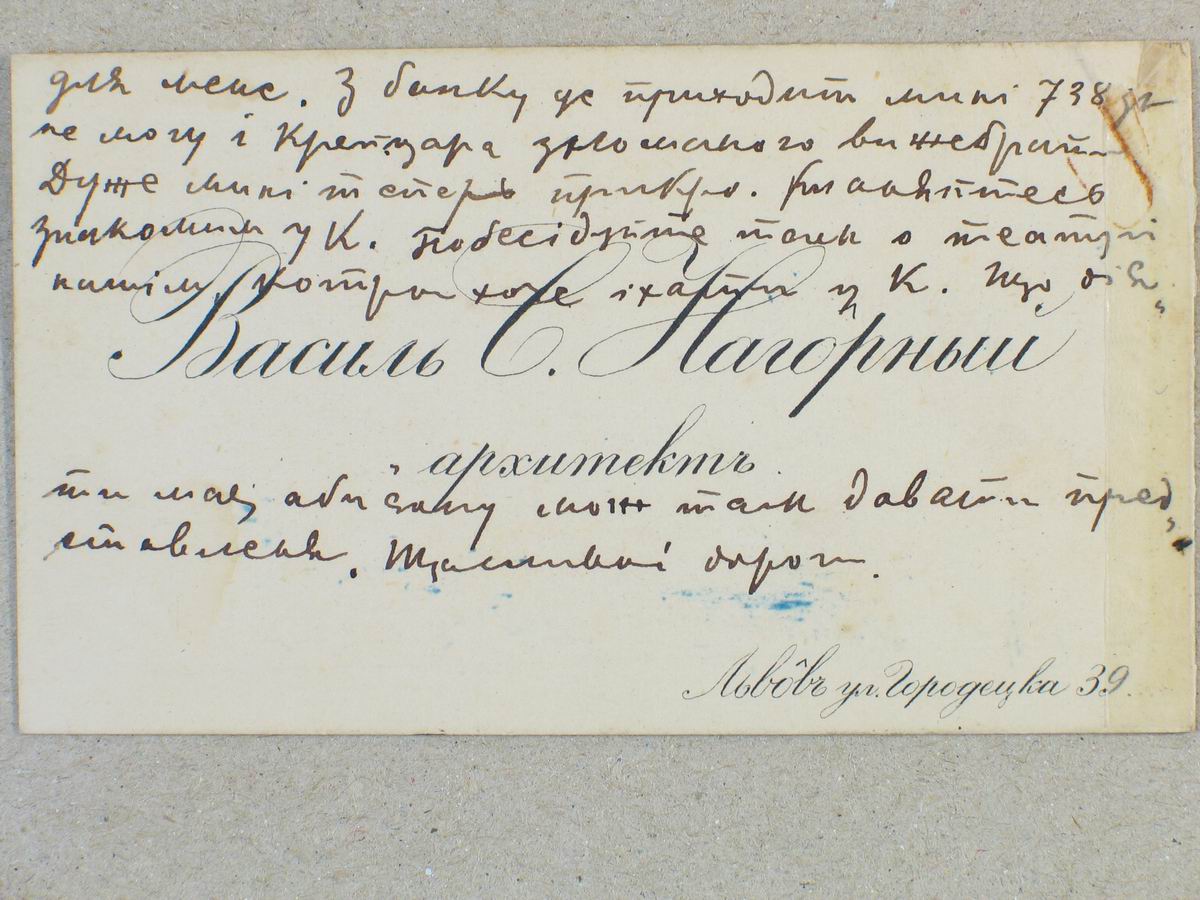 для мене. З банку де приходит мині 738
не могу і крейцара зломаного вижебрати
Дуже мині тепер прикро. Кланяйтесь
знакомим у К. побесідуйте там о театрі
нашім, котрий хоче їхати у К. Що дія„
Василь С. Нагôрный
архитектъ
ти має, аби єму мож там давати пред„
ставленя. Щасливої дороги.
Львôвъ ул. Городецка 39.